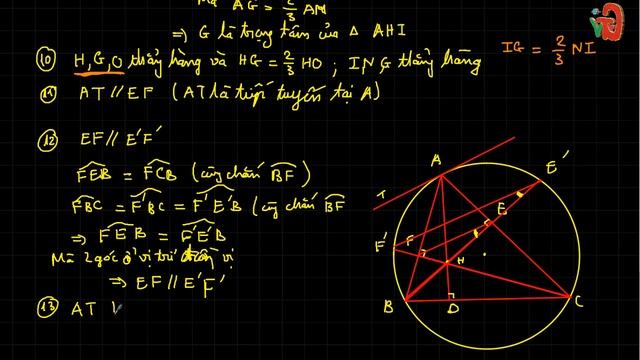 Mà AG = 2/3 AM
⇒ G là trọng tâm của Δ AHI
IG = 2/3 NI
(10) H, G, O thẳng hàng và HG = 2/3 HO ; I N G thẳng hàng
(11) AT // EF (AT là tiếp tuyến tại A)
(12) EF // E'F'
FEB = FCB (cùng chắn BF)
FBC = F'BC = F'E'B (cùng chắn BF
⇒ FEB = F'E'B
Mà 2 góc ở vị trí đồng vị
⇒ EF // E'F'
(13) AT
A
E'
T
E
F'
F
H
B
D
C